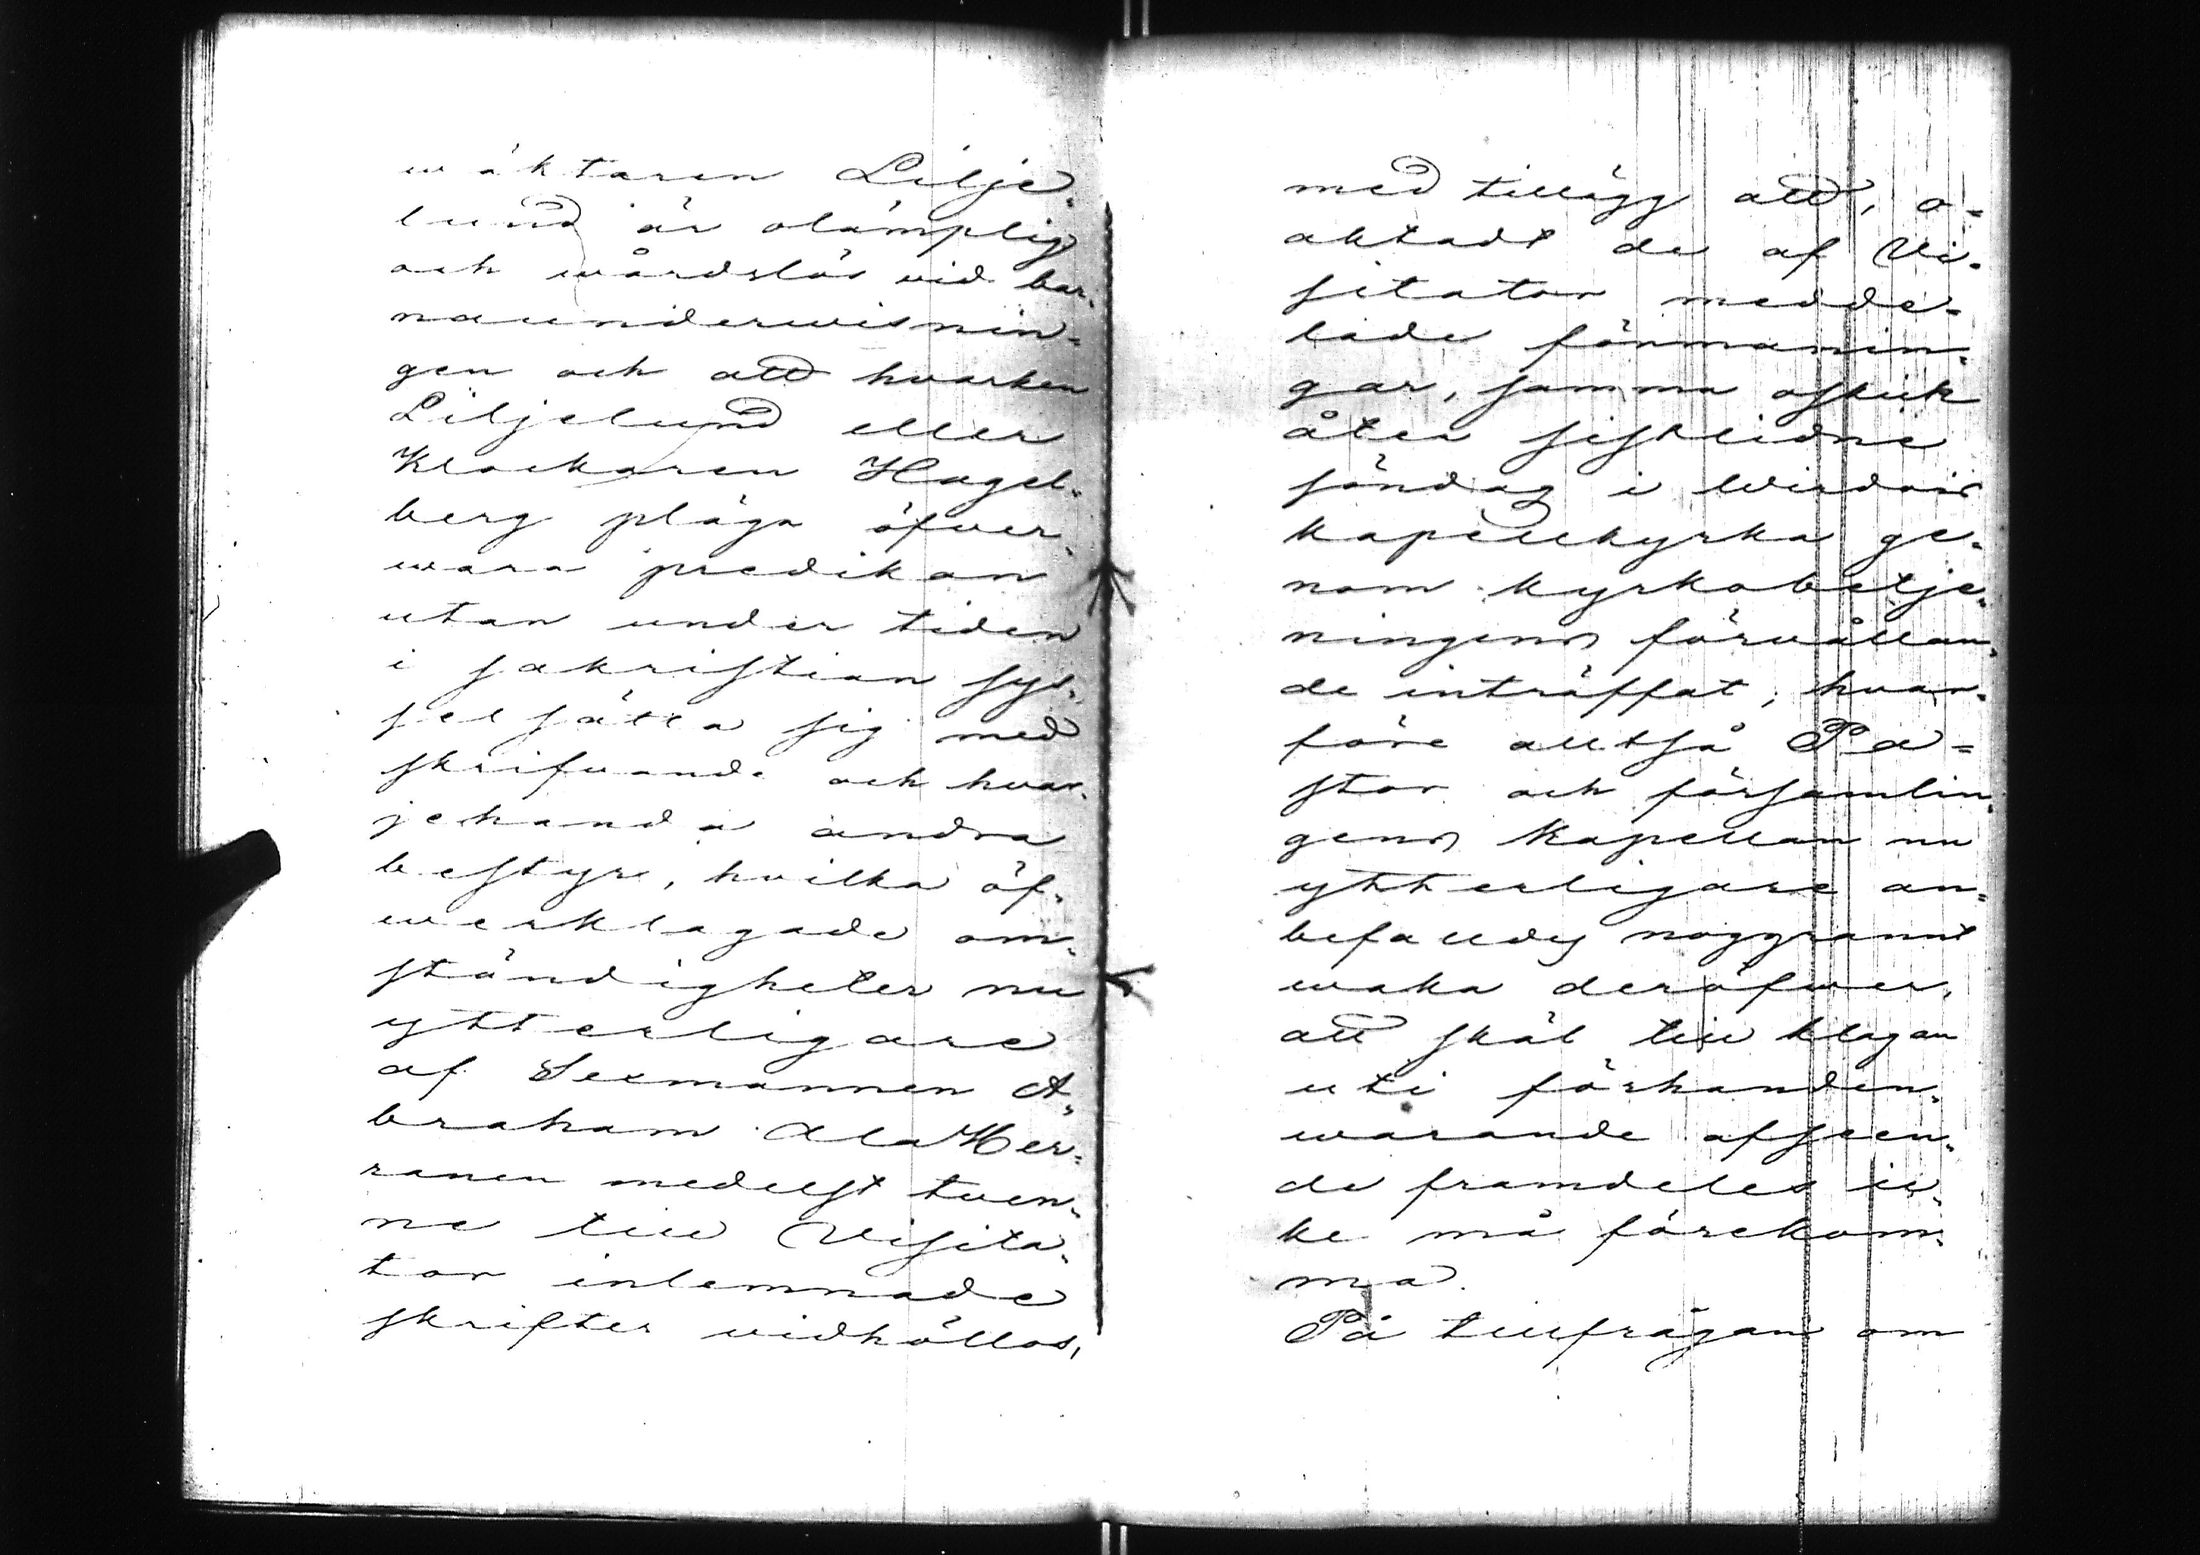 wäktaren Lilje-
lund är olämplig
och wårdslös vid bar-
naunderwisnin-
gen och att hvarken
Liljelund eller
Klockaren Hagel-
berg pläga öfver-
wara predikan
utan under tiden
i sakristian sys-
selsätta sig med
skrifvande och hvar-
jehanda andra
bestyr, hvilka öf-
werklagade om-
ständigheter nu
ytterligare
af Sexmannen A-
braham Ala Her-
ranen medelst tven-
ne till Visita-
tor inlemnade
skrifter vidhöllos,
med tillägg att, o-
aktadt de af Vi-
sitator medde-
lade förmanin-
gar, samma oskick
åter sistlidne
söndag i Wirdois
kapellkyrka ge-
nom kyrkobetje-
ningens förvållan-
de inträffat, hvar-
före alltså Pa-
stor och församlin-
gens Kapellan nu
ytterligare an-
befalldes noggrannt
waka deröfwer,
att skäl till klagan
uti förhanden-
warande afseen-
de framdeles ic-
ke må förekom-
ma.
På tillfrågan om